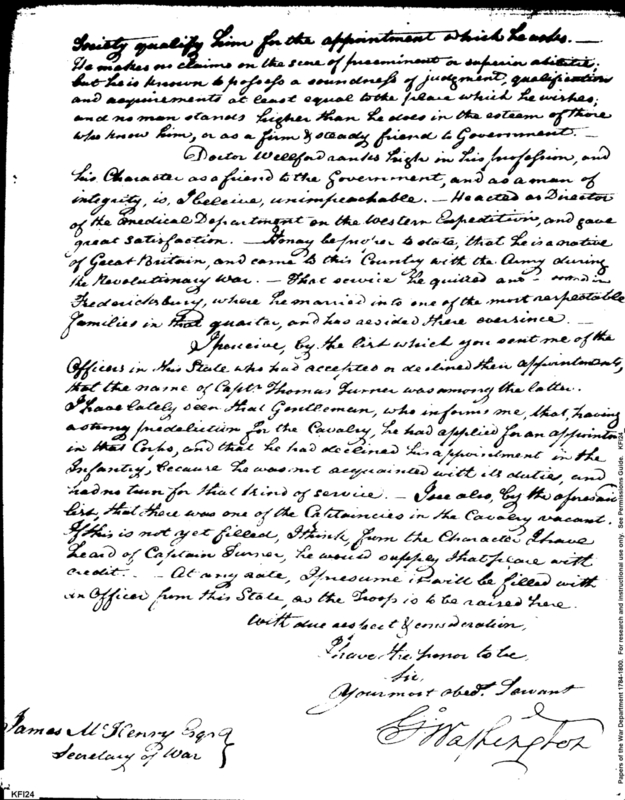 Society qualify him for the appointment which he asks. —
He makes no claims on the score of preeminent or superior abilities;
but he is known to possess a soundness of judgment, qualification
and acquirements at least equal to the place which he wishes;
and no man stands higher than he does in the esteem of those
who know him, or as a firm & steady friend to Government. —
Doctor Wellford ranks high in his profession, and
his Character as a friend to the Government, and as a man of
integrity, is, I beleive, unimpeachable. — He acted as Director
of the Medical Department on the Western Expedition, and gave
great satisfaction. — It may be proper to state, that he is a native
of Great Britain, and came to this Country with the Army during
the Revolutionary War. — That service he quitted and
Fredericksburg, where he married into one of the most respectable
families in that quarter, and has resided there ever since. —
I perceive, by the list which you sent me of the
Officers in this State who had accepted or declined their appointments,
that the name of Captn. Thomas Turner was among the latter.
I have lately seen that Gentleman, who informs me, that, having
a strong predeliction for the Cavalry, he had applied for an appointm
in that Corps, and that he had declined his appointment in the
Infantry, because he was not acquainted with its duties, and
had no turn for that kind of service. — I see also, by the aforesaid
list, that there was one of the Captaincies in the Cavalry vacant.
If this is not yet filled, I think, from the Character I have
heard of Captain Turner, he would supply that place with
credit. — At any rate, I presume it will be filled with
an Officer from this State, as the Troop is to be raised here.
With due respect & consideration,
I have the honor to be
Sir,
Your most obedt. Servant
Go: Washington
James McHenry Esqr.
Secretary of War
KFI24
Papers of the War Department 1784-1800. For research and instructional use only. See Permissions Guide. KFI24